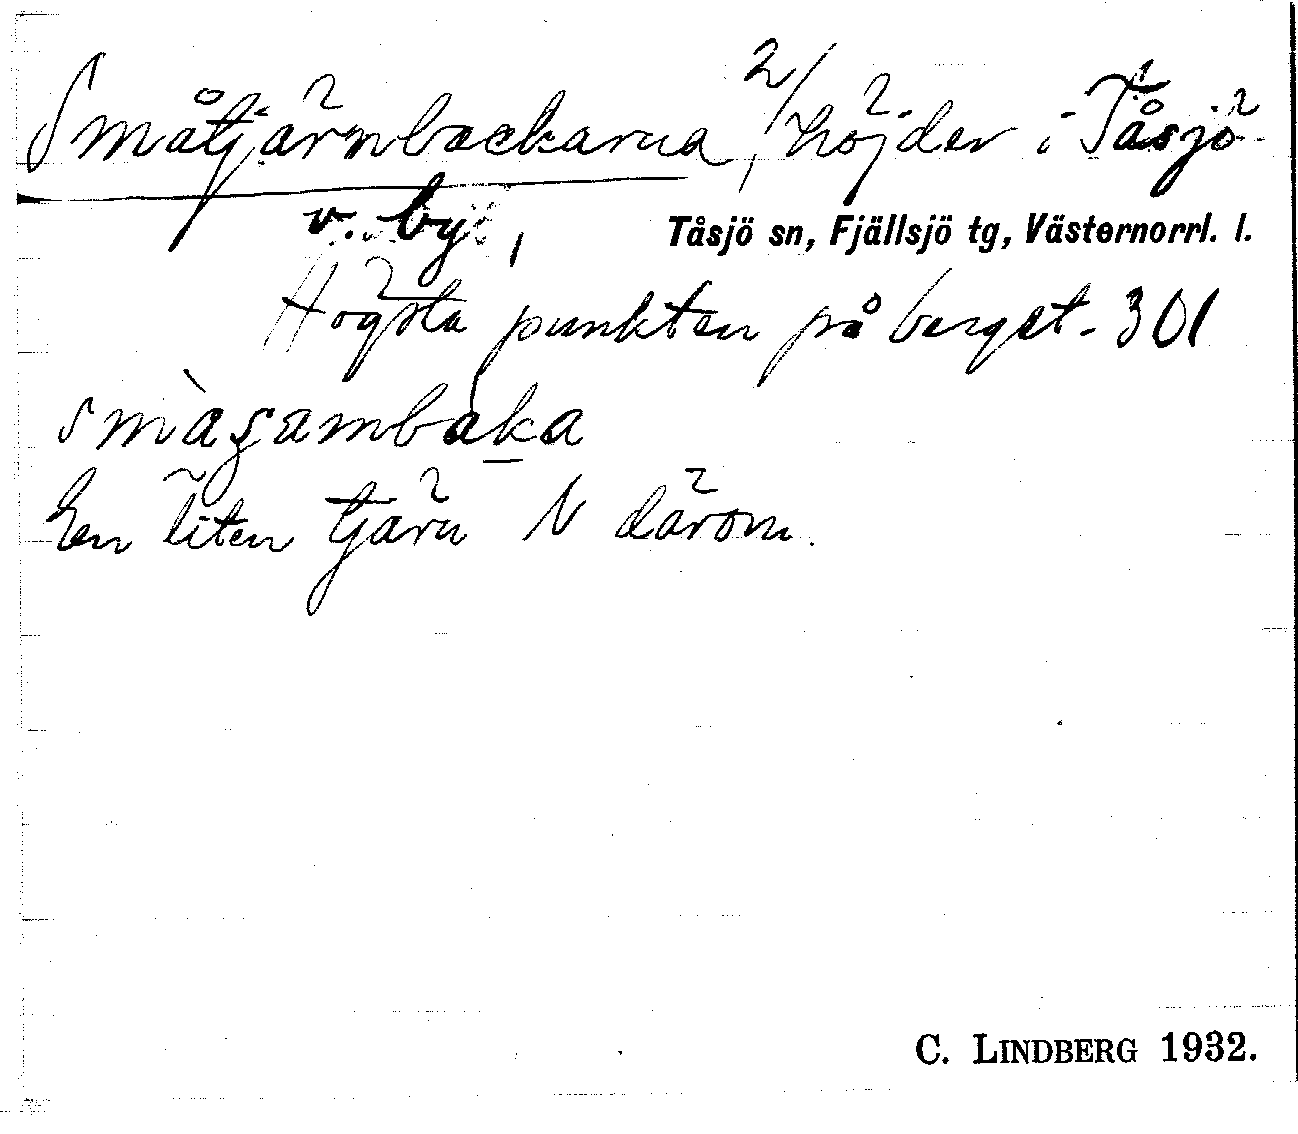 Småtjärnbackarna, 2/ höjder i Tåsjö
v. by,
Tåsjö sn, Fjällsjö tg, Västernorrl. l.
Högsta punkten på berget - 301
smàʒambàka
En liten tjärn N därom.
C. LINDBERG 1932.